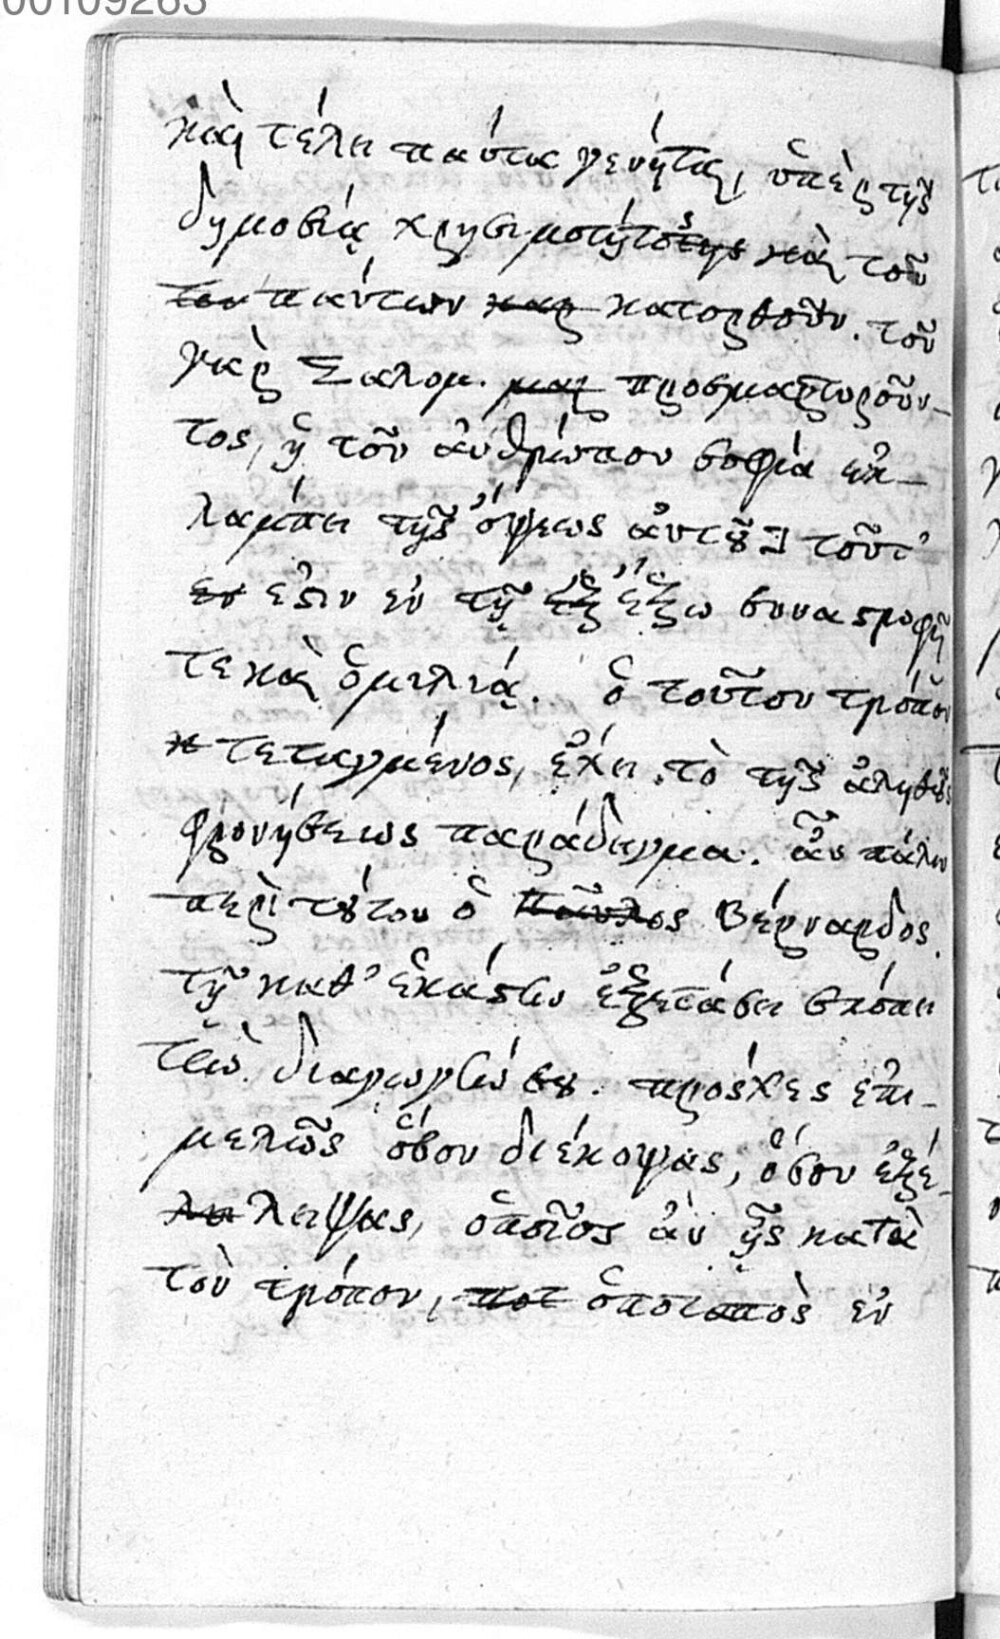 00109263
καὶ τέλει πάντα γενήται, ὑπὲρ τῆς
δημοσίας χρησιμοτήτος καὶ τοῦ
του πάντων και κατορθοῦν. τοῦ
γὰρ Σαλομ. μαρ προσμαρτυροῦν-
τος, ἡ τοῦ ἀνθρώπου σοφία ἐκ-
λαμπει τῆς ὄψεως ἀυτοῦ τοῦτ'
εν ἔστιν ἐν τῇ ἐξ ἔξω συναστροφῇ
τε καὶ ὁμιλίᾳ. ὁ τοῦτον τρόπον
κ τεταγμένος, ἔχει τὸ τῆς ἀληθοῦς
φρονήσεως παράδειγμα. ἂν πάλιν
περὶ τούτου ὁ Παῦλος Βέρναρδος.
τῇ καθ' ἑκάστην ἐξετάσει σκόπει
τὴν διαγωγήν σου. πρόσχες ἐπι-
μελῶς ὅσον διέκοψας, ὅσον ἐξέ-
λει λειψας, ὁποῖος ἀν ᾖς κατὰ
τὸν τρόπον, ποτ ὁποταπὸς ἐν